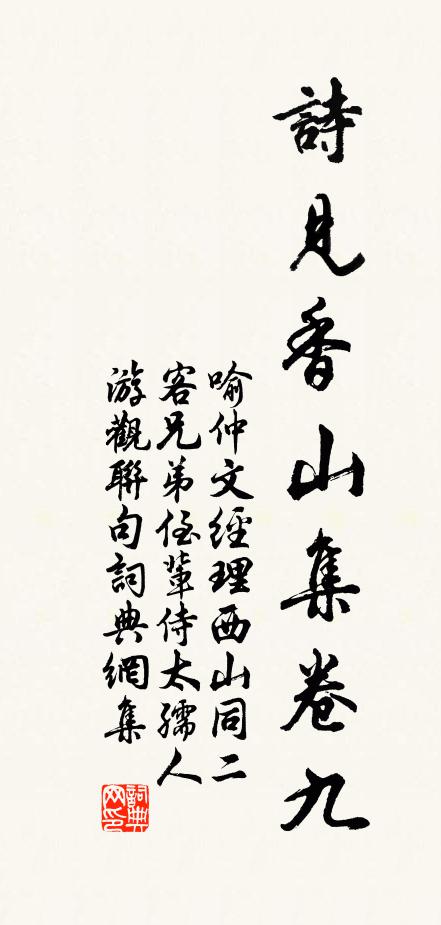 詩見香山集卷九
喻仲文經理西山同二
客兄弟侄輩侍太孺人
游觀聯句詞典網集
詞典网印